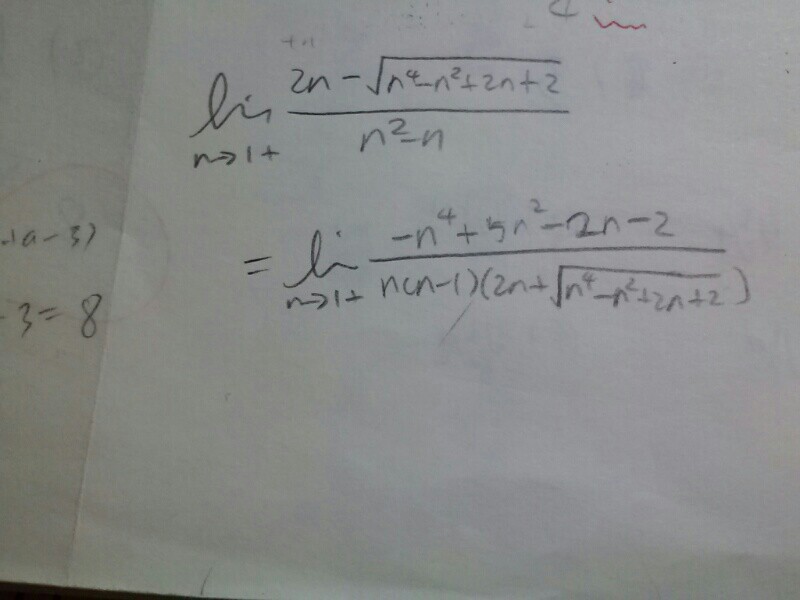 lim n→1+ (2n - √(n⁴-n²+2n+2)) / (n²-n)
= lim n→1+ (-n⁴+5n²-2n-2) / (n(n-1)(2n+√(n⁴-n²+2n+2)))
a-3)
3=8